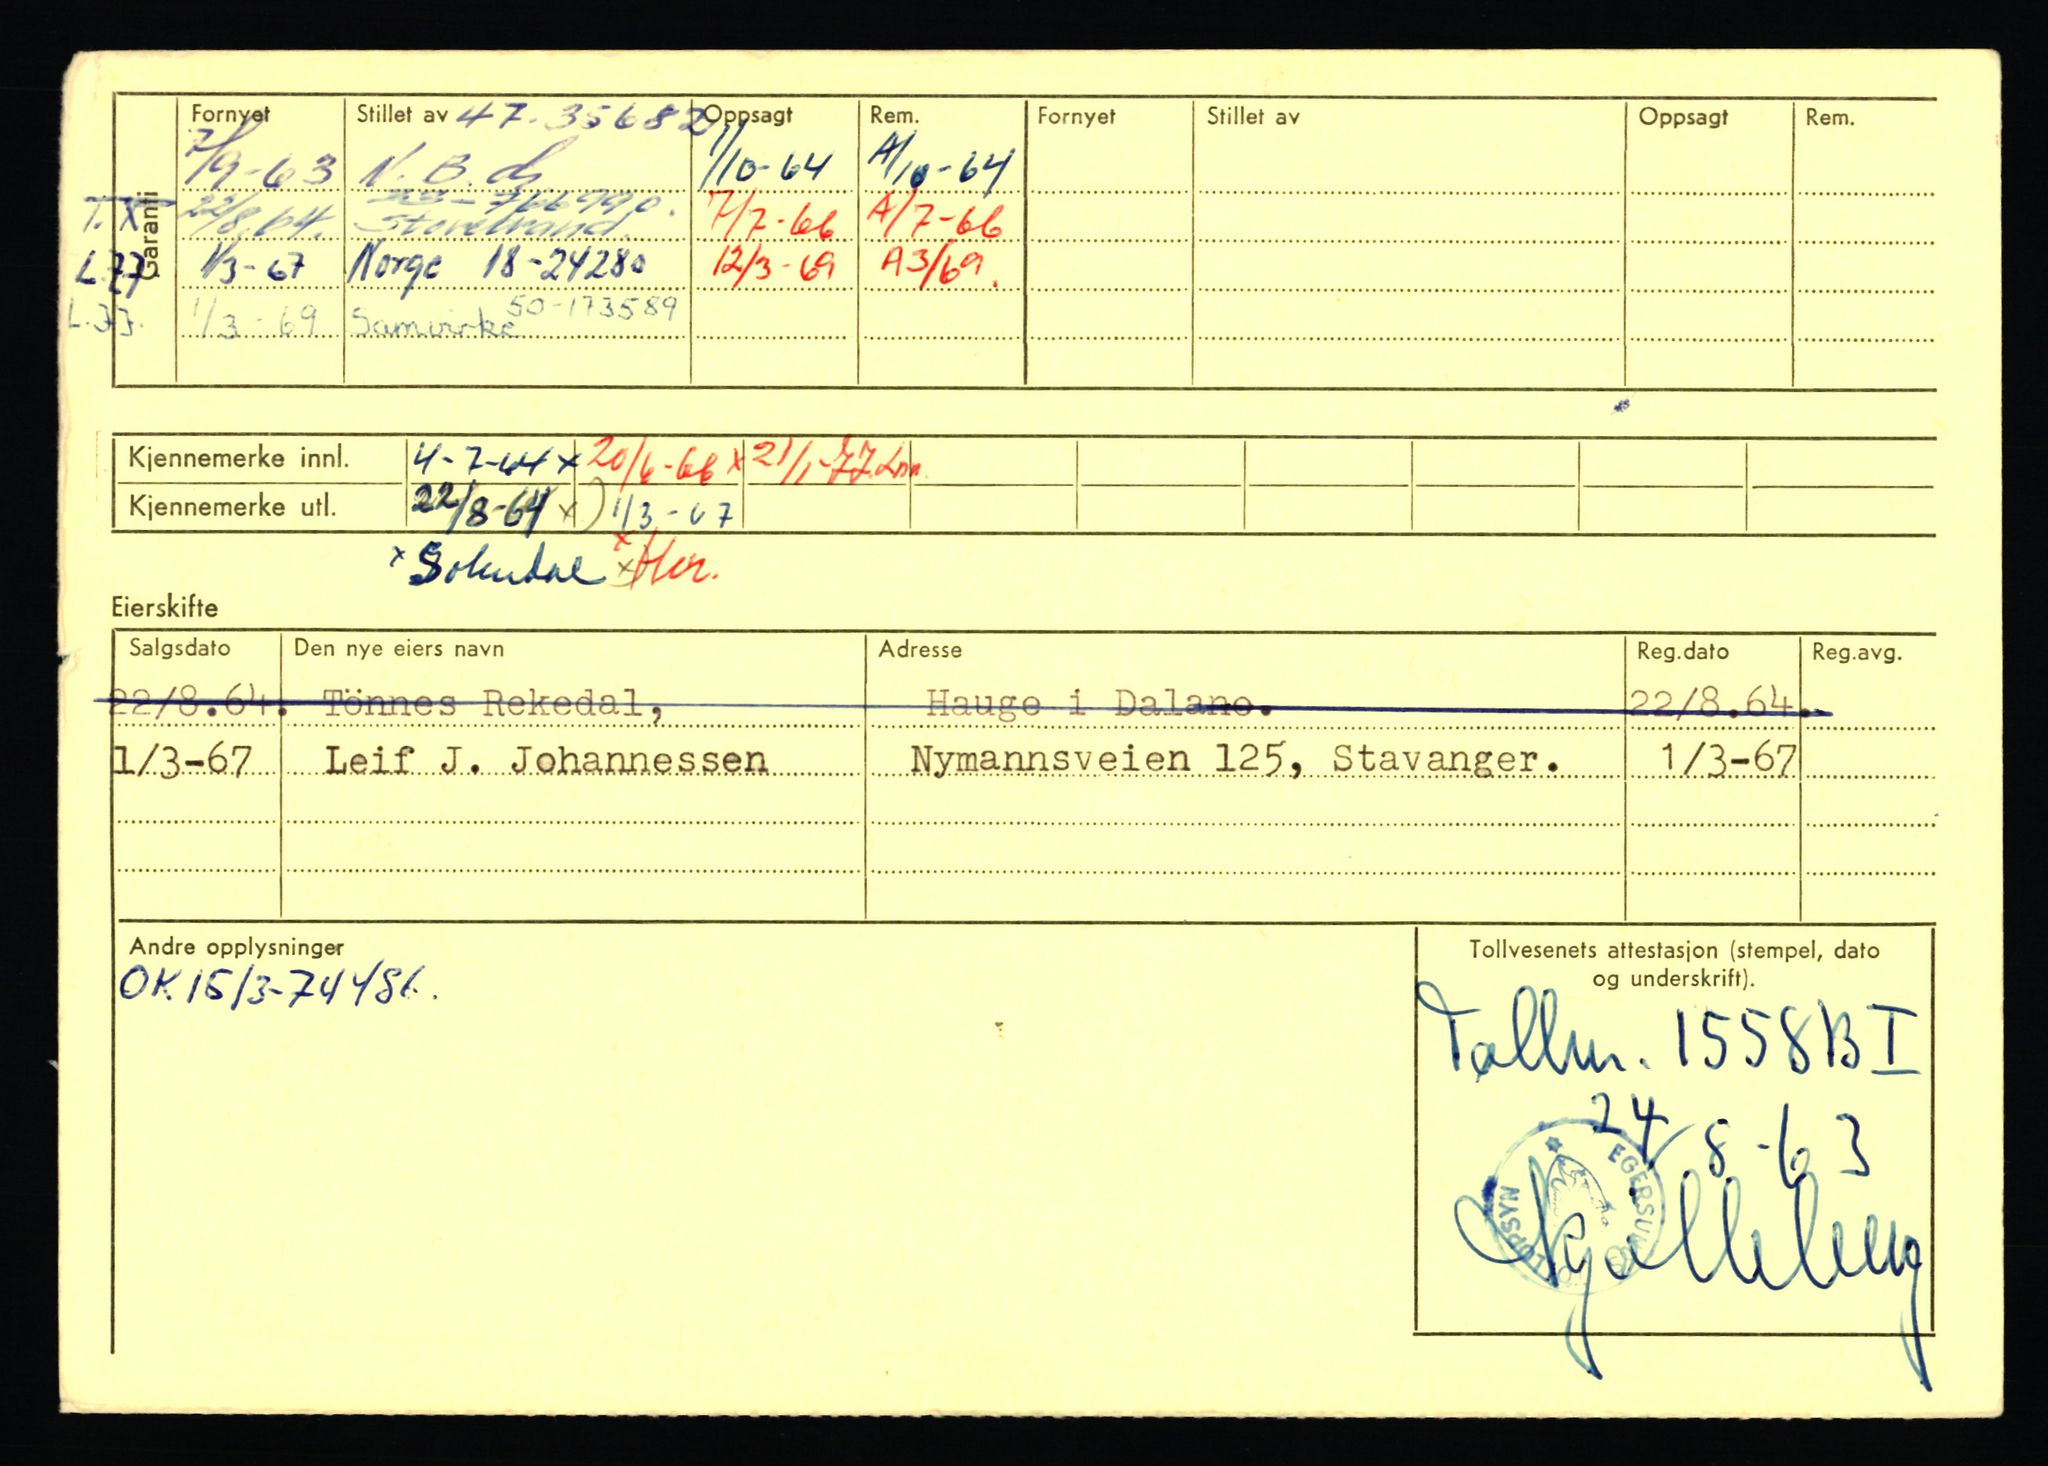 Garanti Fornyet Stillet av 47-35682 Oppsagt Rem. Fornyet Stillet av Oppsagt Rem.
7/9-63 N. B. 1/10-64 A/10-64
22/8.64. Storebrand. 7/7-66 A/7-66
1/3-67 Norge 18-24280 12/3-69 A3/69.
L.JJ. 1/3-69 Samvirke 50-173589
Kjennemerke innl. 4-7-64 x 20/6-66 x 21/1-77
Kjennemerke utl. 22/8-64 x) 1/3-67
x Sokndal x
Eierskifte
Salgsdato Den nye eiers navn Adresse Reg.dato Reg.avg.
22/8.64. Tönnes Rekedal, Hauge i Dalane. 22/8.64.
1/3-67 Leif J. Johannessen Nymannsveien 125, Stavanger. 1/3-67
Andre opplysninger
OK 15/3-74
Tollvesenets attestasjon (stempel, dato
og underskrift).
Tollnr. 1558 B I
24/8-63
EGERSUND TOLLOPPSYN